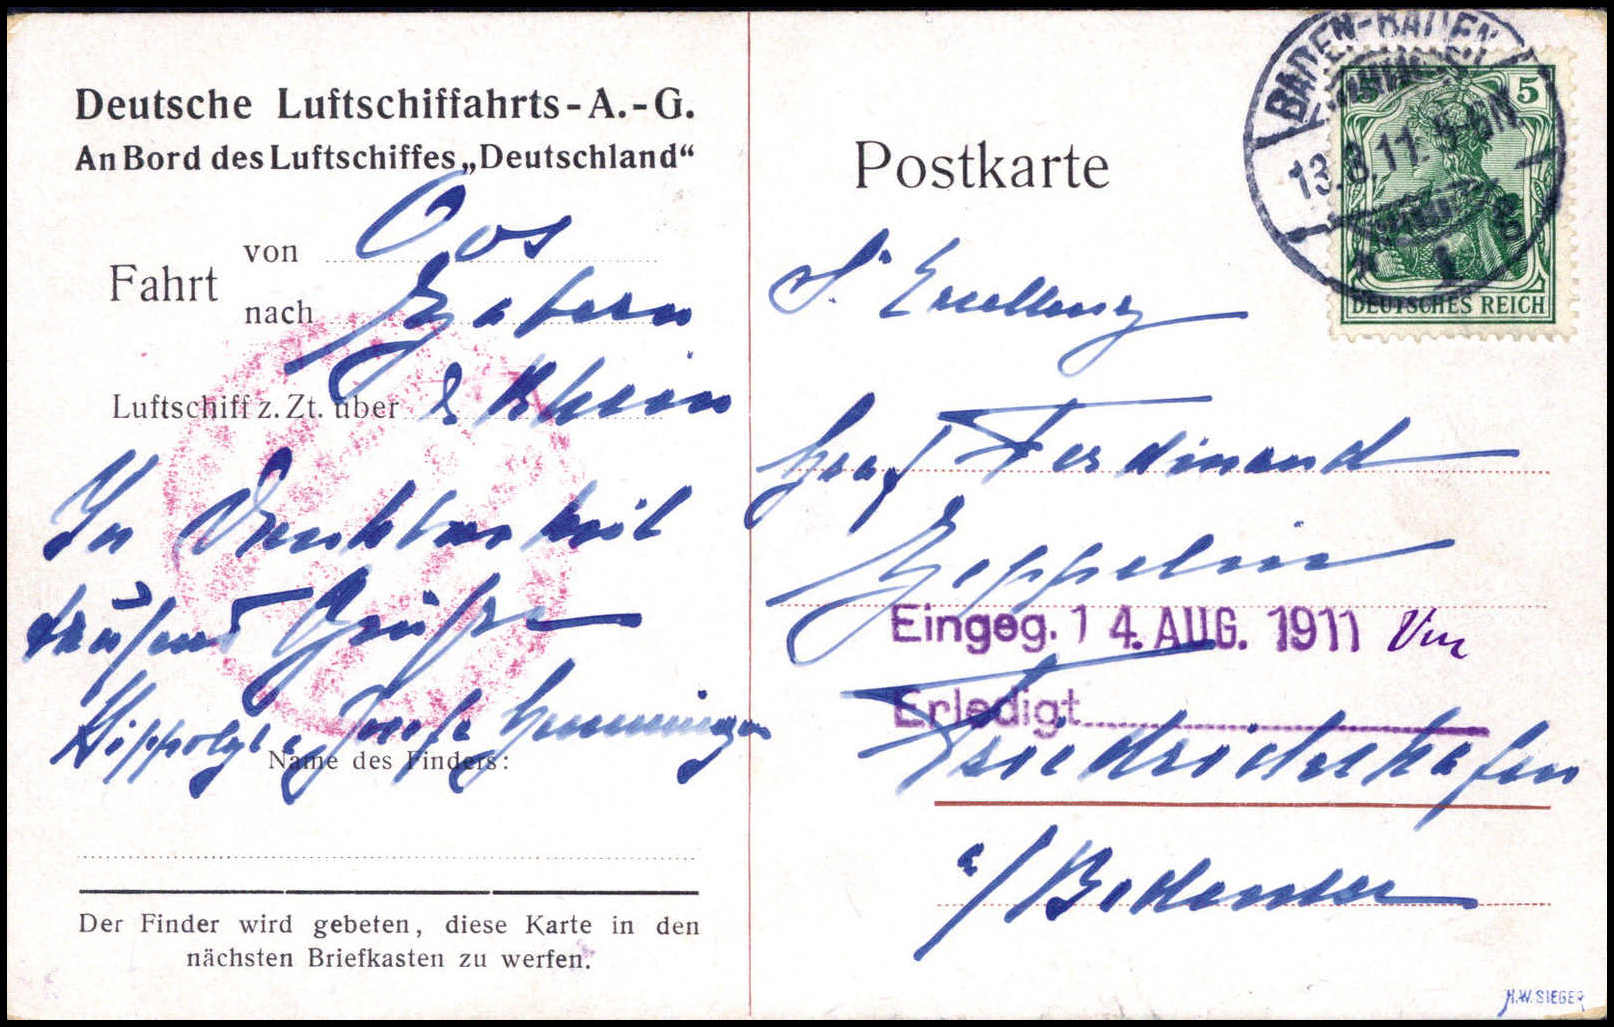 Deutsche Luftschiffahrts-A.-G.
An Bord des Luftschiffes „Deutschland“
Fahrt
von Oos
nach Zabern
Luftschiff z. Zt. über d Rhein
In Dankbarkeit
tausend Grüsse
Hippolyt
Name des Finders:
Der Finder wird gebeten, diese Karte in den
nächsten Briefkasten zu werfen.
Postkarte
BADEN-BADEN
13.8.11. 5-6N.
5
DEUTSCHES REICH
Sr Excellenz
Graf Ferdinand
Zeppelin
Eingeg. 14. AUG. 1911
Erledigt
Friedrichshafen
a/Bodensee
H.W. SIEGER